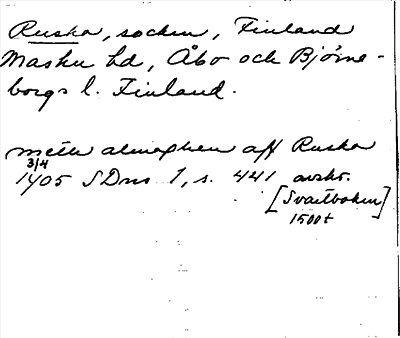 Rusko, socken, Finland
Masku hd, Åbo och Björne-
borgs l. Finland.
meth almoghen aff Rusko
3/4
1405 SDns 1, s. 441 avskr.
[Svartboken]
1500 t